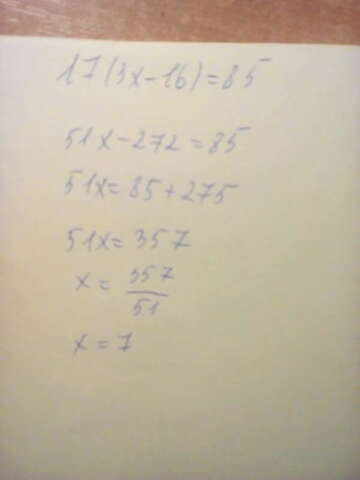 17(3x-16)=85
51x-272=85
51x=85+275
51x=357
x=357/51
x=7